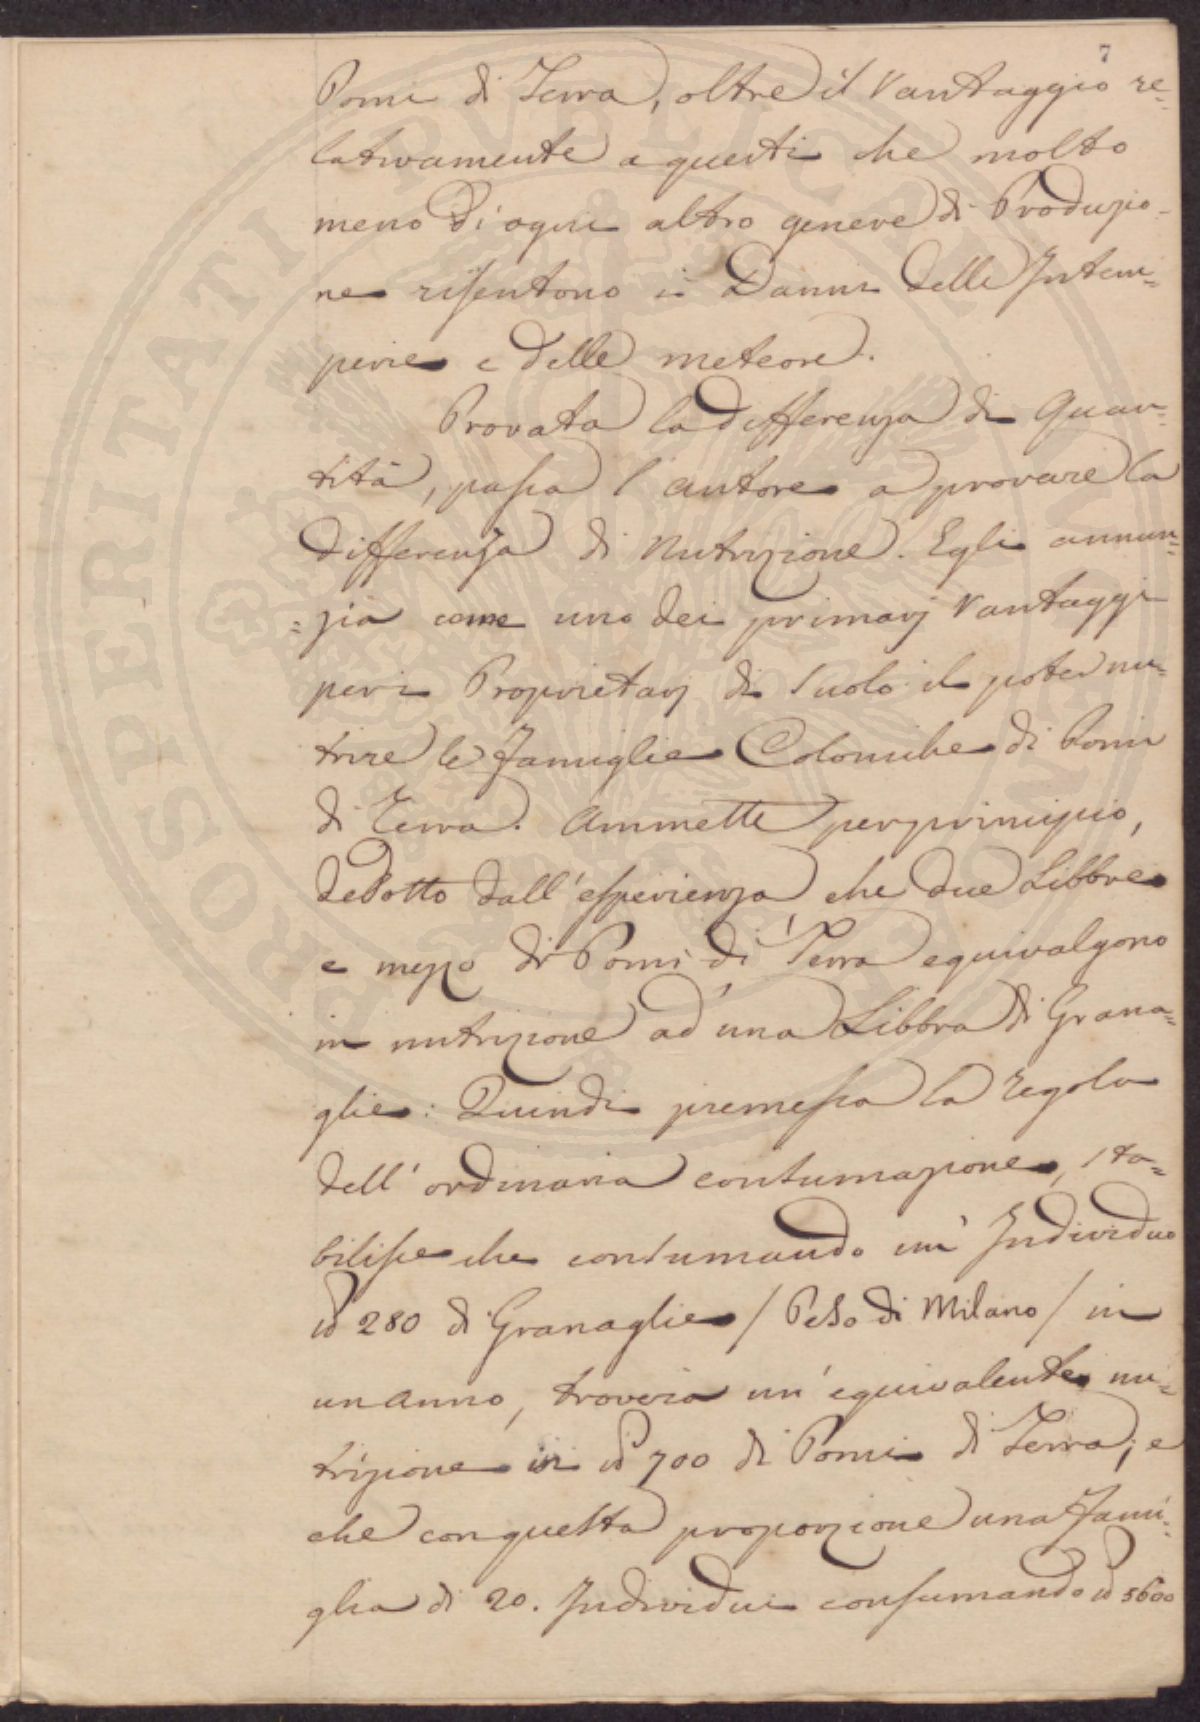 7
Pomi di Terra, oltre il Vantaggio re=
lativamente a questi che molto
meno di ogni altro genere di Produzio-
ne risentono i Danni delle Intem=
perie e delle meteore.
Provata la differenza di Quan=
tità, passa l'autore a provare la
differenza di Nutrizione. Egli annun=
=zia come uno dei primarj Vantaggi
peri Proprietarj di Suolo il poter nu=
trire le famiglie Coloniche di Pomi
di Terra. Ammette per principio,
dedotto dall'esperienza che due Libbre
e mezzo di Pomi di Terra equivalgono
in nutrizione ad una Libbra di Grana=
glie: Quindi premessa la regola
dell'ordinaria consumazione, sta=
bilisce che consumando un' Individuo
280 di Granaglie / Peso di Milano / in
un anno, troverà un'equivalente nu=
trizione in 700 di Pomi di Terra; e
che con questa proporzione una fami=
glia di 20. Individui consumando 5600
PROSPERITATI PUBLICAE